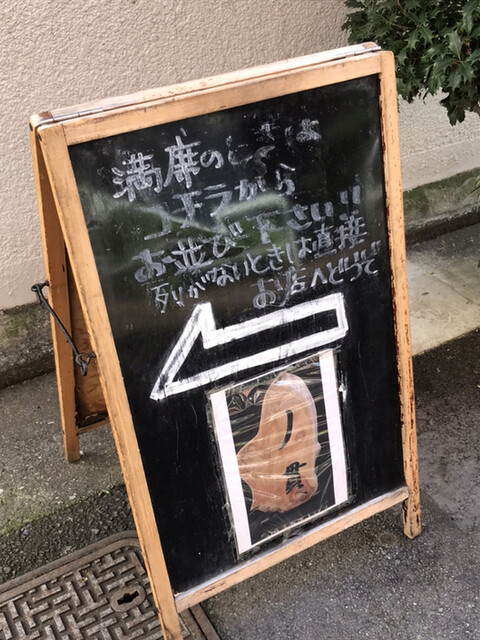 満席のときは
コチラから
お並び下さい!!
列がないときは直接
お店へどうぞ
一貫